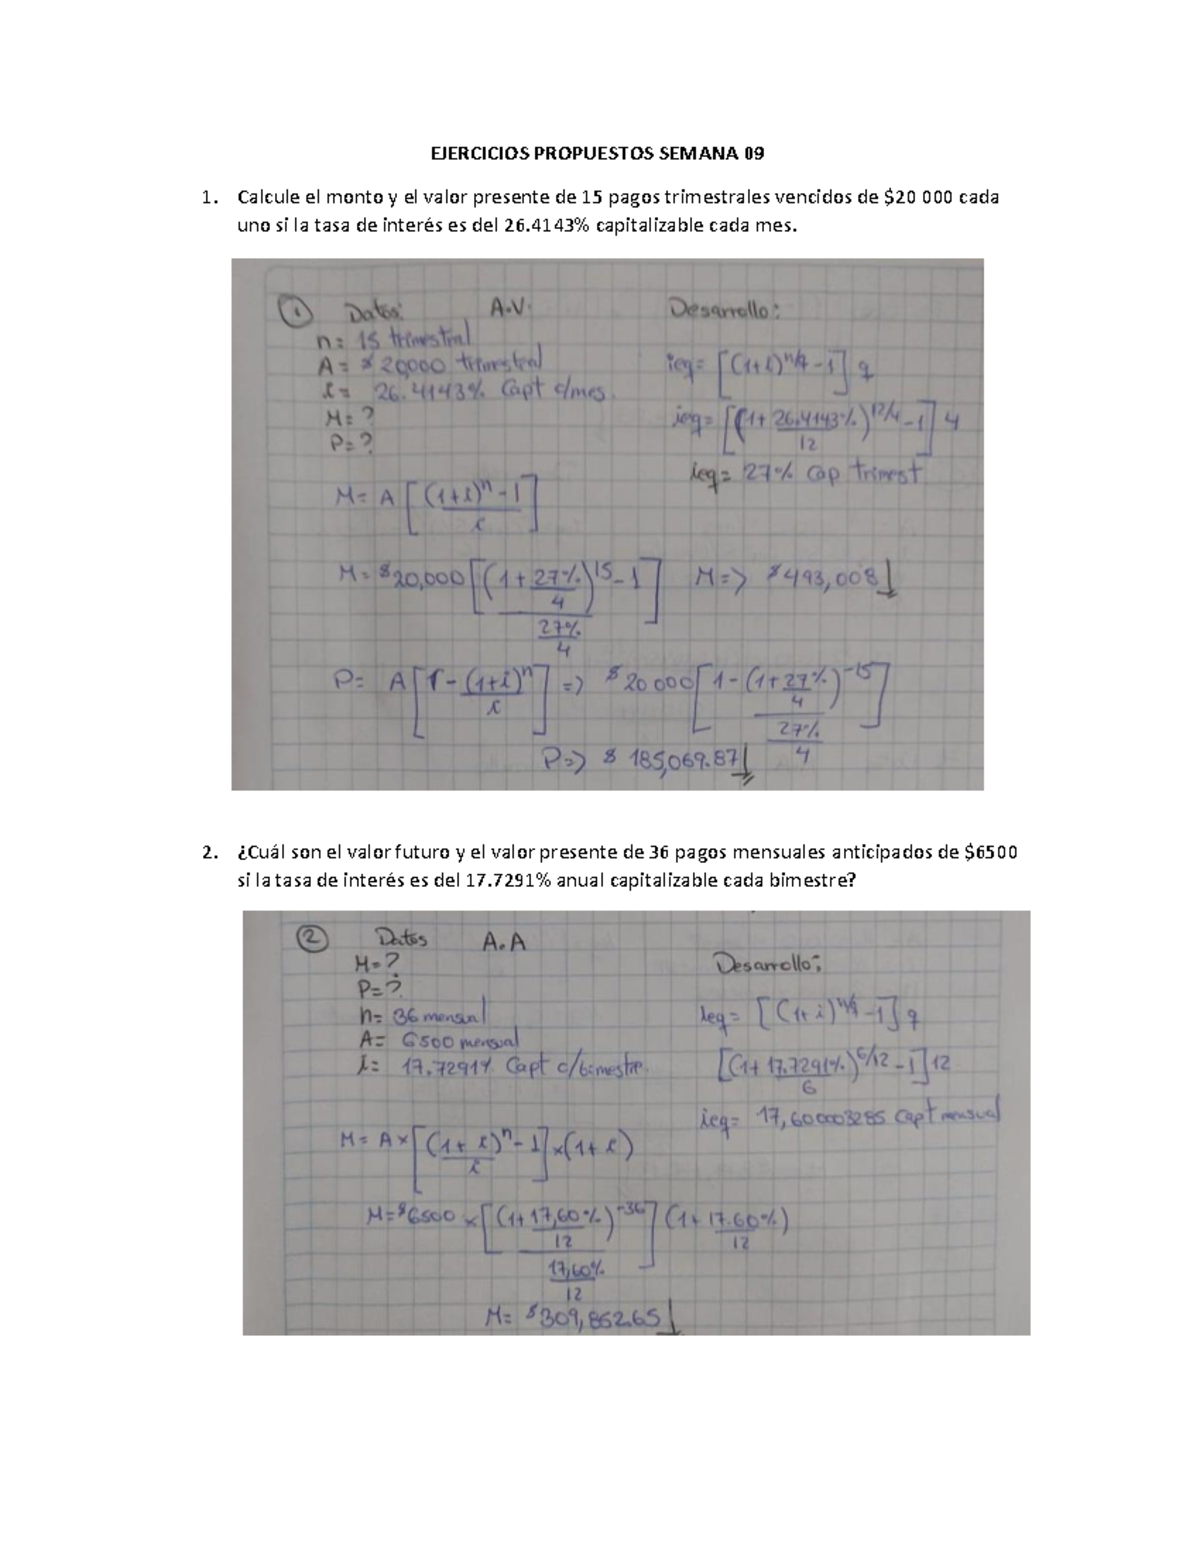 EJERCICIOS PROPUESTOS SEMANA 09
1. Calcule el monto y el valor presente de 15 pagos trimestrales vencidos de $20 000 cada
uno si la tasa de interés es del 26.4143% capitalizable cada mes.
① Datos: A.V. Desarrollo:
n= 15 trimestral
A= $20,000 trimestral
i= 26.4143% Capt c/mes.
M= ?
P= ?
ieq= [(1+i)^n/q -1] q
ieq= [(1+ 26.4143%/12)^12/4 -1] 4
ieq= 27% Cap trimest
M= A [((1+i)^n - 1)/i]
M= $20,000 [((1+ 27%/4)^15 - 1)/(27%/4)] M=> $493,008
P= A [1 - (1+i)^n / i] => $20 000 [1 - (1+ 27%/4)^-15 / (27%/4)]
P=> $ 185,069.87
2. ¿Cuál son el valor futuro y el valor presente de 36 pagos mensuales anticipados de $6500
si la tasa de interés es del 17.7291% anual capitalizable cada bimestre?
② Datos A.A
M= ?
P= ?
n= 36 mensual
A= 6500 mensual
i= 17.7291% Capt c/bimestre.
Desarrollo:
ieq= [(1+i)^n/q -1] q
[(1+ 17.7291%/6)^6/12 -1] 12
ieq= 17,600003285 Capt mensual
M= A x [((1+ i)^n - 1)/i] x (1+ i)
M= $6500 x [(1+ 17,60%/12)^-36 / (17,60%/12)] (1+ 17.60%/12)
M= $309,862.65